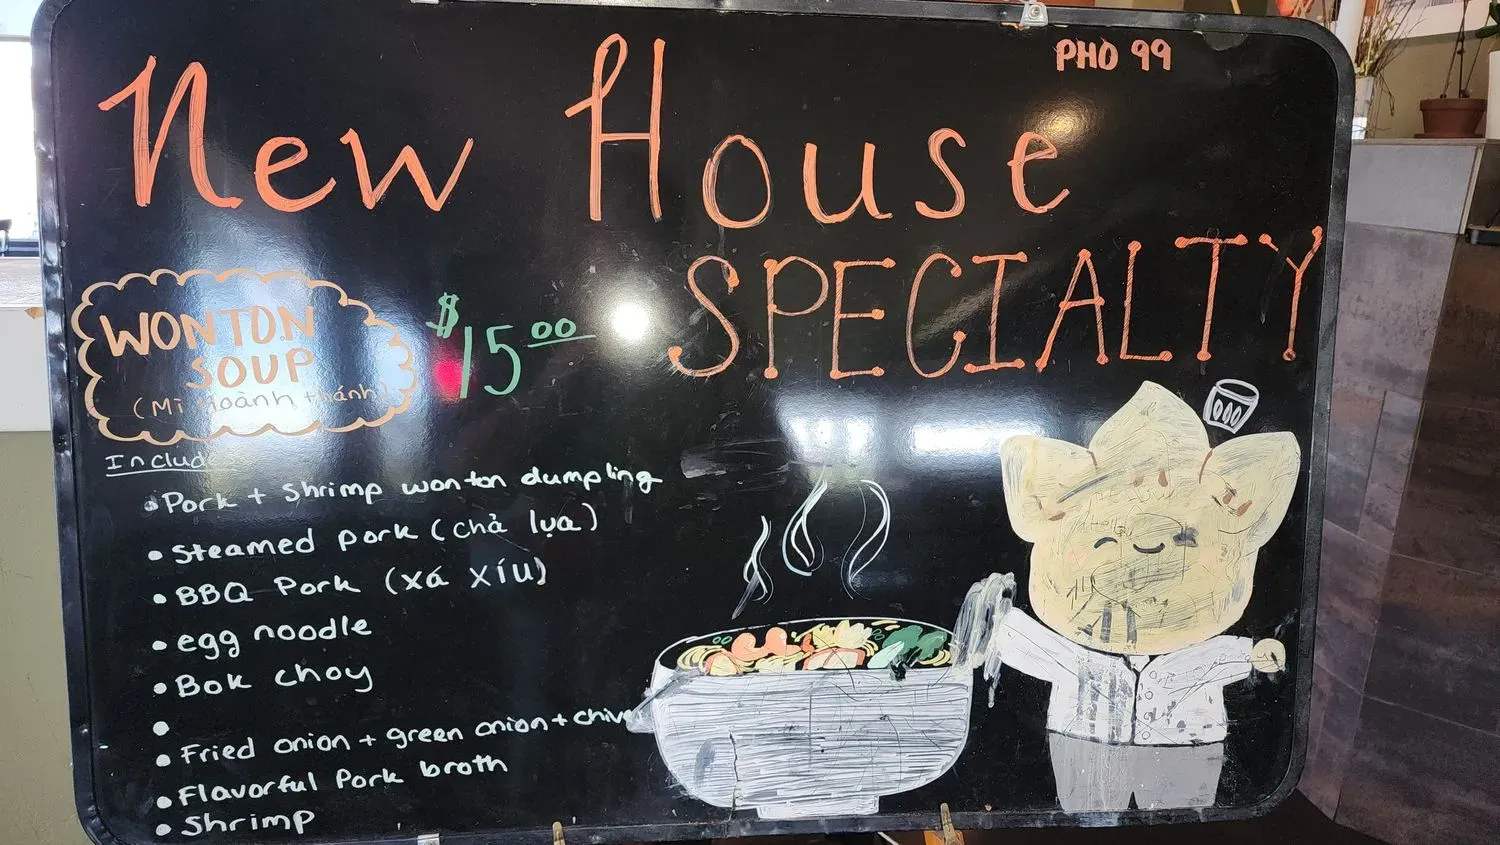 PHO 99
New House
SPECIALTY
WONTON
SOUP
(Mì Hoành thánh)
$15.00
Includ
• Pork + Shrimp wonton dumpling
• Steamed pork (chả lụa)
• BBQ Pork (xá xíu)
• egg noodle
• Bok choy
•
• Fried onion + green onion + chive
• Flavorful Pork broth
• Shrimp